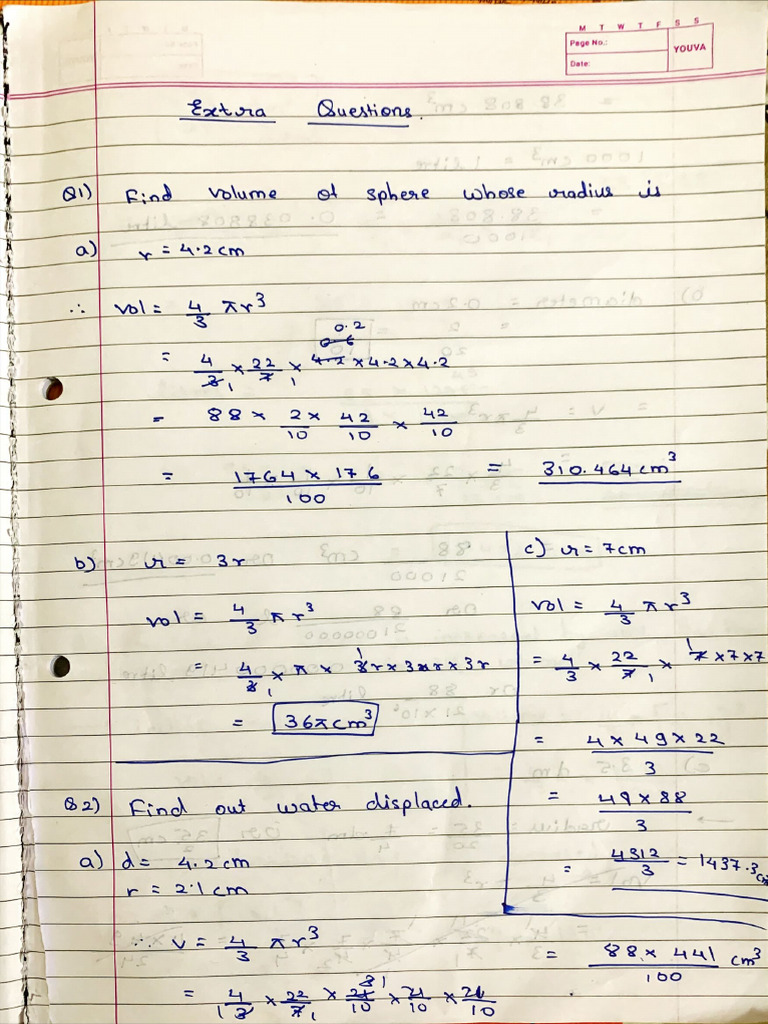 M T W T F S S
Page No.:
Date:
YOUVA
Extra Questions.
Q1) Find volume of sphere whose radius is
a) r = 4.2cm
∴ vol = 4/3 πr³
0.2
0.6
= 4/3 1 × 22/7 1 × 4.2 × 4.2 × 4.2
= 88 × 2/10 × 42/10 × 42/10
= 1764 × 176 / 100 = 310.464cm³
b) r = 3r
vol = 4/3 πr³
= 4/3 1 × π × 1 3r × 3r × 3r
= 36πcm³
c) r = 7cm
vol = 4/3 πr³
= 4/3 × 22/7 1 × 1 7 × 7 × 7
= 4 × 49 × 22 / 3
= 49 × 88 / 3
= 4312/3 = 1437.3cm
Q2) Find out water displaced.
a) d = 4.2cm
r = 2.1cm
∴ v = 4/3 πr³
= 4/1 3 × 22/7 1 × 21/10 × 21/10 × 21/10
= 88 × 441 / 100 cm³